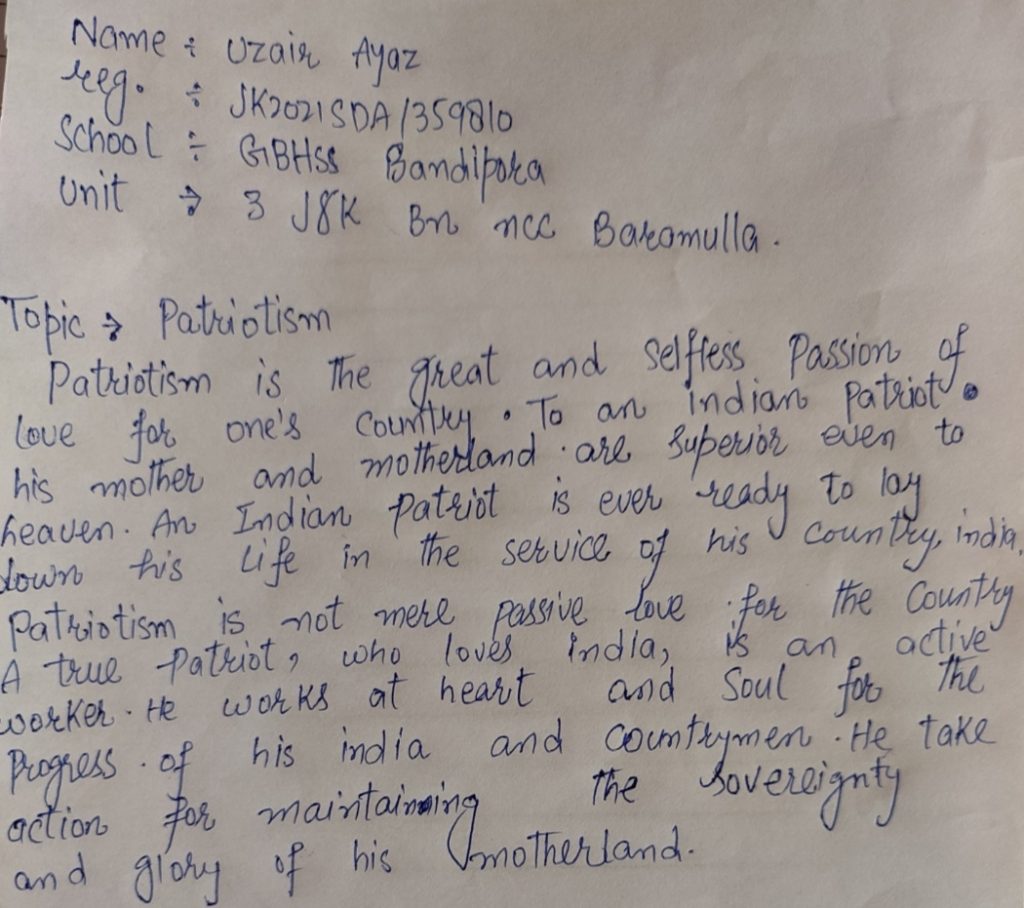 Name ÷ Uzair Ayaz
reg. ÷ JK2021SDA/359810
School ÷ GBHSS Bandipora
Unit → 3 J&K Bn ncc Baramulla.
Topic → Patriotism
Patriotism is the great and selfless Passion of
love for one's country. To an indian patriot.
his mother and motherland are superior even to
heaven. An Indian patriot is ever ready to lay
down his life in the service of his country, india,
Patriotism is not mere passive love for the country
A true patriot, who loves india, is an active
worker. He works at heart and soul for the
Progress of his india and countrymen. He take
action for maintaining the sovereignty
and glory of his motherland.